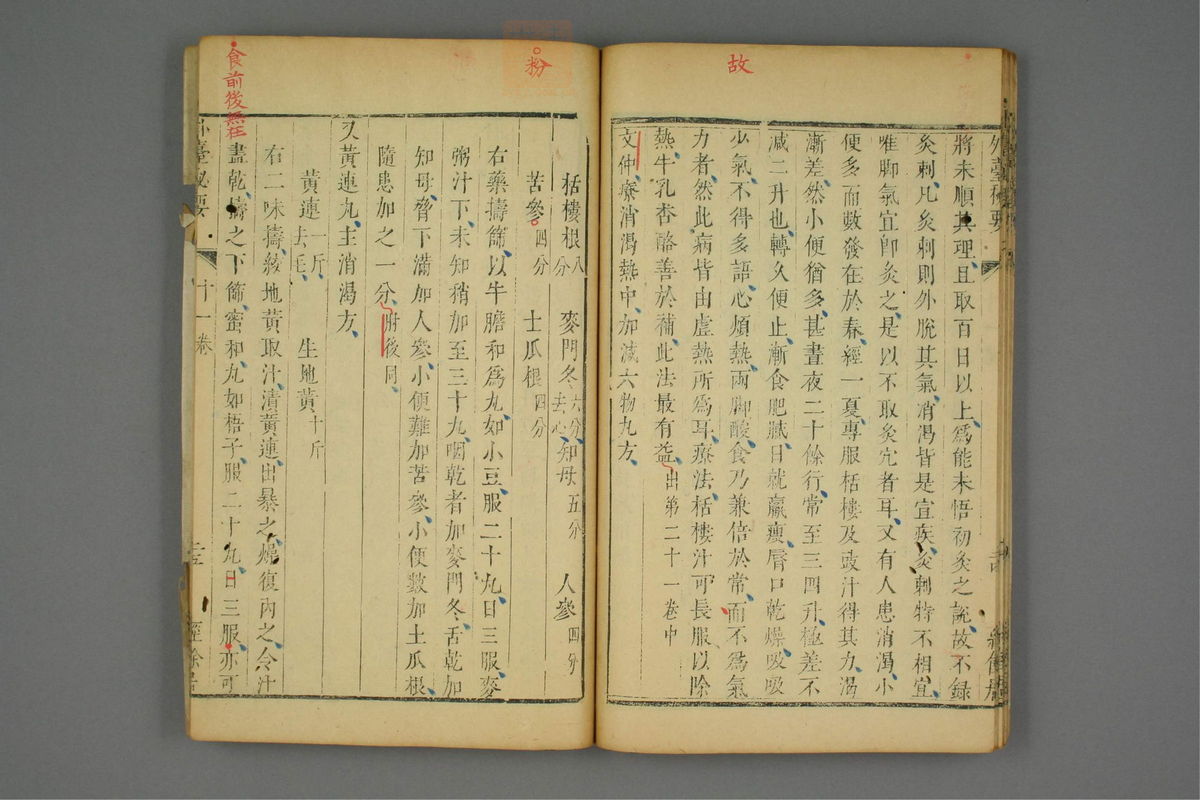 故
將未順其理且取百日以上爲能未悟初灸之說故不録
灸刺凡灸刺則外脫其氣消渴皆是宜疾灸刺特不相宜
唯脚氣宜即灸之是以不取灸穴者耳又有人患消渴小
便多而數發在於春經一夏專服栝樓及豉汁得其力渴
漸差然小便猶多甚晝夜二十餘行常至三四升極差不
减二升也轉久便止漸食肥膩日就羸瘦唇口乾燥吸吸
少氣不得多語心煩熱兩脚酸食乃兼倍於常而不爲氣
力者然此病皆由虛熱所爲耳療法栝樓汁可長服以除
熱牛乳杏酪善於補此法最有益出第二十一卷中
文仲療消渴熱中加减六物丸方
粉
栝樓根八分 麥門冬六分去心 知母五分 人參四分
苦參四分 土瓜根四分
右藥擣篩以牛膽和爲丸如小豆服二十丸日三服麥
粥汁下未知稍加至三十丸咽乾者加麥門冬舌乾加
知母脅下滿加人參小便難加苦參小便數加土瓜根
隨患加之一分肘後同
又黃連丸主消渴方
黃連一斤去毛 生地黃十斤
食前後無在
右二味擣絞地黃取汁漬黃連出暴之燥復內之令汁
盡乾擣之下篩蜜和丸如梧子服二十丸日三服亦可
外臺秘要 十一卷 經餘居